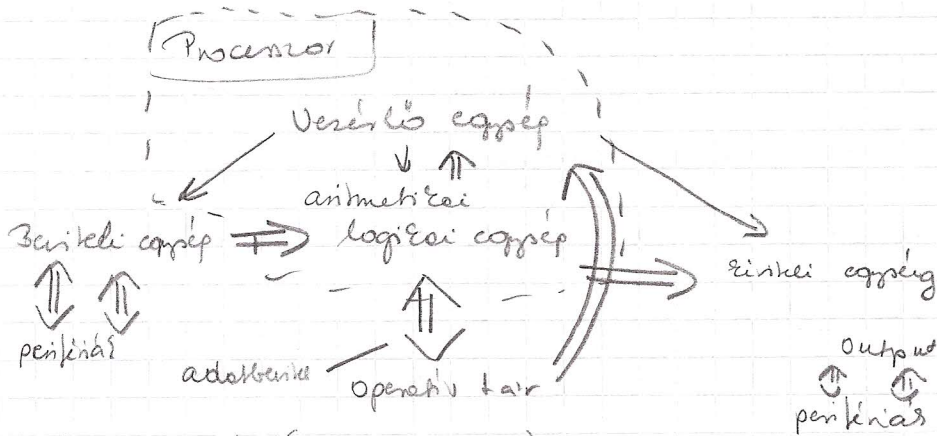 Processzor
Vezérlő egység
aritmetikai
Beviteli egység logikai egység
kiviteli egység
perifériák
adatbevitel
operatív tár
Output
perifériás